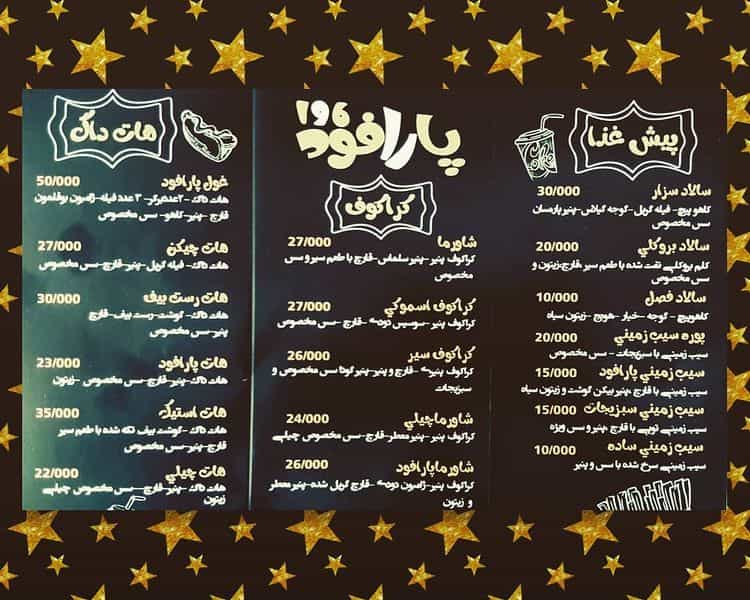 پیش غذا
سالاد سزار 30/000
کاهو پیچ - فیله گریل - گوجه گیلاس - پنیر پارمسان
سس مخصوص
سالاد بروکلی 20/000
کلم بروکلی تفت شده با طعم سیر، قارچ، زیتون و
سس مخصوص
سالاد فصل 10/000
کاهوپیچ - گوجه - خیار - هویج - زیتون سیاه
پوره سیب زمینی 20/000
سیب زمینی با سبزیجات - سس مخصوص
سیب زمینی پارافود 15/000
سیب زمینی با قارچ، پنیر بیکن گوشت و زیتون سیاه
سیب زمینی سبزیجات 15/000
سیب زمینی تنوری با قارچ، پنیر و سس ویژه
سیب زمینی ساده 10/000
سیب زمینی سرخ شده با سس و پنیر
پارافود
۱۹۶
کراکوف
شاورما 27/000
کراکوف پنیر - پنیر سلماس - قارچ با طعم سیر و سس
مخصوص
کراکوف اسموکی 27/000
کراکوف پنیر - سوسیس دودی - قارچ - سس مخصوص
کراکوف سیر 26/000
کراکوف پنیری - قارچ و پنیر - پنیر گودا سس مخصوص و
سبزیجات
شاورماچیلی 24/000
کراکوف پنیر - پنیر معطر - قارچ - سس مخصوص چیلی
شاورماپارافود 26/000
کراکوف پنیر - ژامبون دودی - قارچ گریل شده - پنیر معطر
و زیتون
هات داگ
غول پارافود 50/000
هات داگ - ۲عددبرگر - ۳ عدد فیله - ژامبون بوقلمون
قارچ - پنیر - کاهو - سس مخصوص
هات چیکن 27/000
هات داگ - فیله گریل - پنیر - قارچ - سس مخصوص
هات رست بیف 30/000
هات داگ - گوشت - رست بیف - قارچ
پنیر - سس مخصوص
هات پارافود 23/000
هات داگ - پنیر - قارچ - سس مخصوص - زیتون
هات استیک 35/000
هات داگ - گوشت بیف تکه شده با طعم سیر
قارچ - پنیر - سس مخصوص
هات چیلی 22/000
هات داگ - پنیر - قارچ - سس مخصوص چیلی
زیتون